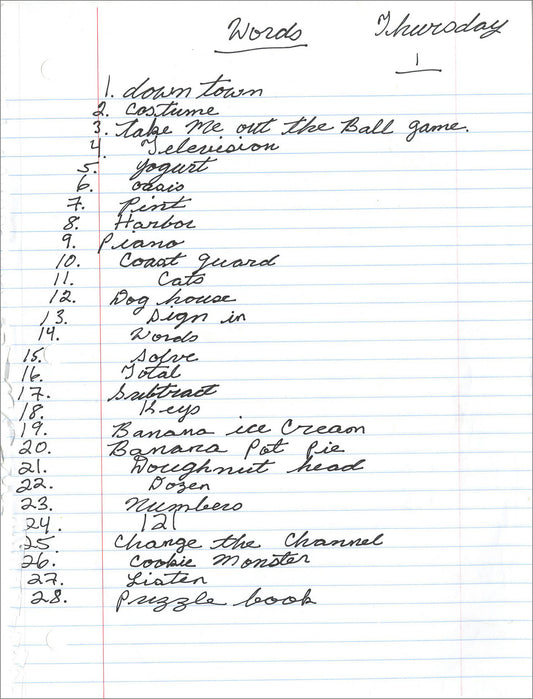 Words Thursday
1
1. down town
2. Costume
3. Take Me out the Ball game.
4. Television
5. Yogurt
6. oasis
7. Pint
8. Harbor
9. Piano
10. Coast guard
11. Cats
12. Dog house
13. Sign in
14. Words
15. Solve
16. Total
17. Subtract
18. Keys
19. Banana ice Cream
20. Banana Pot Pie
21. Doughnut head
22. Dozen
23. Numbers
24. 121
25. Change the Channel
26. Cookie Monster
27. Listen
28. Puzzle book